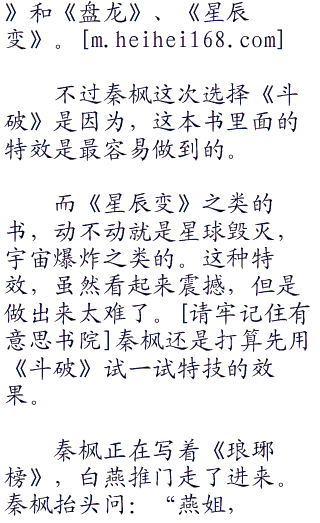 》和《盘龙》、《星辰
变》。[m.heihei168.com]
不过秦枫这次选择《斗
破》是因为，这本书里面的
特效是最容易做到的。
而《星辰变》之类的
书，动不动就是星球毁灭，
宇宙爆炸之类的。这种特
效，虽然看起来震撼，但是
做出来太难了。[请牢记住有
意思书院]秦枫还是打算先用
《斗破》试一试特技的效
果。
秦枫正在写着《琅琊
榜》，白燕推门走了进来。
秦枫抬头问：“燕姐，